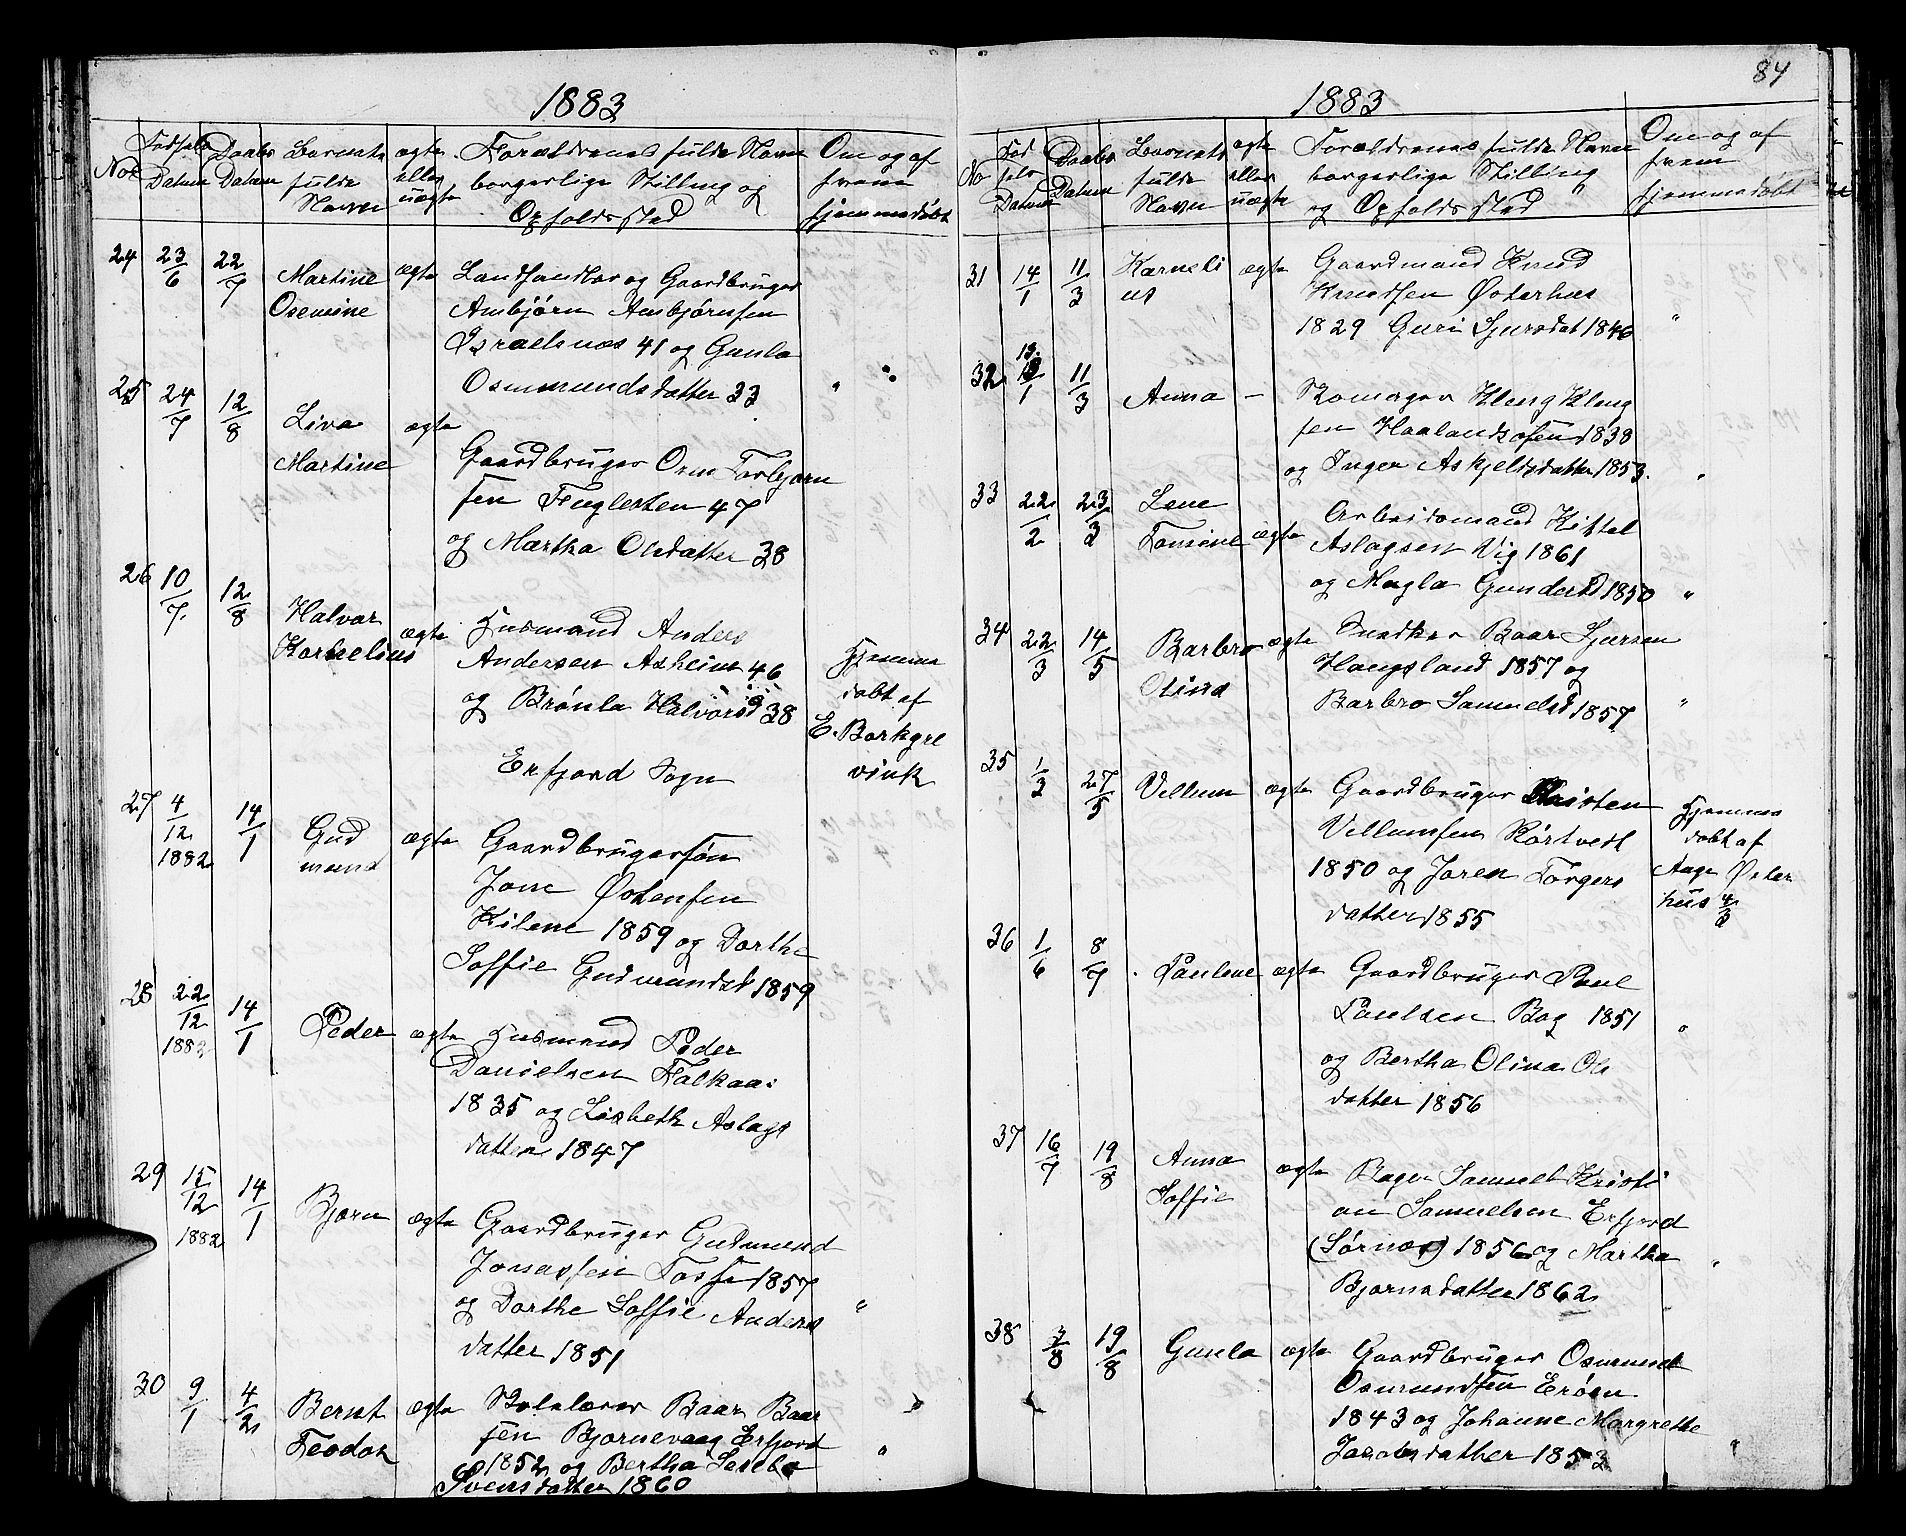 1883
No
Fødsels Datum
Daabs Datum
Barnets fulde Navn
ægte eller uægte
Forældrenes fulde Navn
borgerlige Stilling og
Opholdssted
Om og af hvem hjemmedøbt
24 23/6 22/7 Martine ægte Landhandler og Gaardbruger
Osemine Ambjørn Ambjørnsen
Israelsnæs 41 og Gunla
Osmundsdatter 33 "
25 24/7 12/8 Liva ægte
Martine Gaardbruger Orm Torbjørn
sen Fuglesten 47
og Martha Olsdatter 38
26 10/7 12/8 Halvor
Kornelius ægte Husmand Anders
Andersen Asheim 46 Hjemme
og Brønla Halvorsd 38 døbt af
E. Borkgre
Erfjord Sogn vink
27 4/12 1882 14/1 Gud ægte Gaardbrugersøn
mund Jone Østensen
Kilene 1859 og Dorthe
Soffie Gudmundsd 1859
28 22/12 1882 14/1 Peder ægte Husmand Peder
Danielsen Falkaa
1835 og Lisbeth Aslags
datter 1847
29 15/12 1882 14/1 Bjørn ægte Gaardbruger Gudmund
Jonassen Tosse 1857
og Dorthe Soffie Anders "
datter 1851
30 9/1 4/2 Bernt ægte Skolelærer Baar Baar
Teodor sen Bjørnevaag Erfjord "
1852 og Bertha Serebe
Svensdatter 1860
84
1883
No
Fødsels Datum
Daabs Datum
Barnets fulde Navn
ægte eller uægte
Forældrenes fulde Navn
borgerlige Stilling
og Opholdssted
Om og af hvem hjemmedøbt
31 14/1 11/3 Korneli ægte Gaardmand Knud
us Knudsen Østerhus
1829 Guri Sjursdat 1846 "
32 13/1 11/3 Anna – Skomager Kleng Kleng
sen Haalandsosen 1838
og Inger Askjeldsdatter 1853. "
33 22/2 23/3 Lene Arbeidsmand Kittel
Tomine ægte Aslagsen Vig 1861
og Magla Gundersd 1850 "
34 22/3 14/5 Barbro ægte Snedker Baar Sjursen
Olina Haugsland 1857 og
Barbro Samuelsd 1857 "
35 1/3 27/5 Villum ægte Gaardbruger Kristen Hjemme
Villumsen Rørtvedt døbt af
1850 og Joren Torgers Aage Øster
datter 1855 hus 4/3
36 1/6 8/7 Pauline ægte Gaardbruger Paul
Paulsen Bog 1851 "
og Bertha Olina Ols
datter 1856
37 16/7 19/8 Anna ægte Bager Samuel Kristi
Soffie an Samuelsen Erfjord
(Sørnæs) 1856 og Martha "
Bjørnsdatter 1862
38 3/8 19/8 Gunla ægte Gaardbruger Osmund
Osmundsen Erøen
1843 og Johanne Margrethe
Jacobsdatter 1853 "